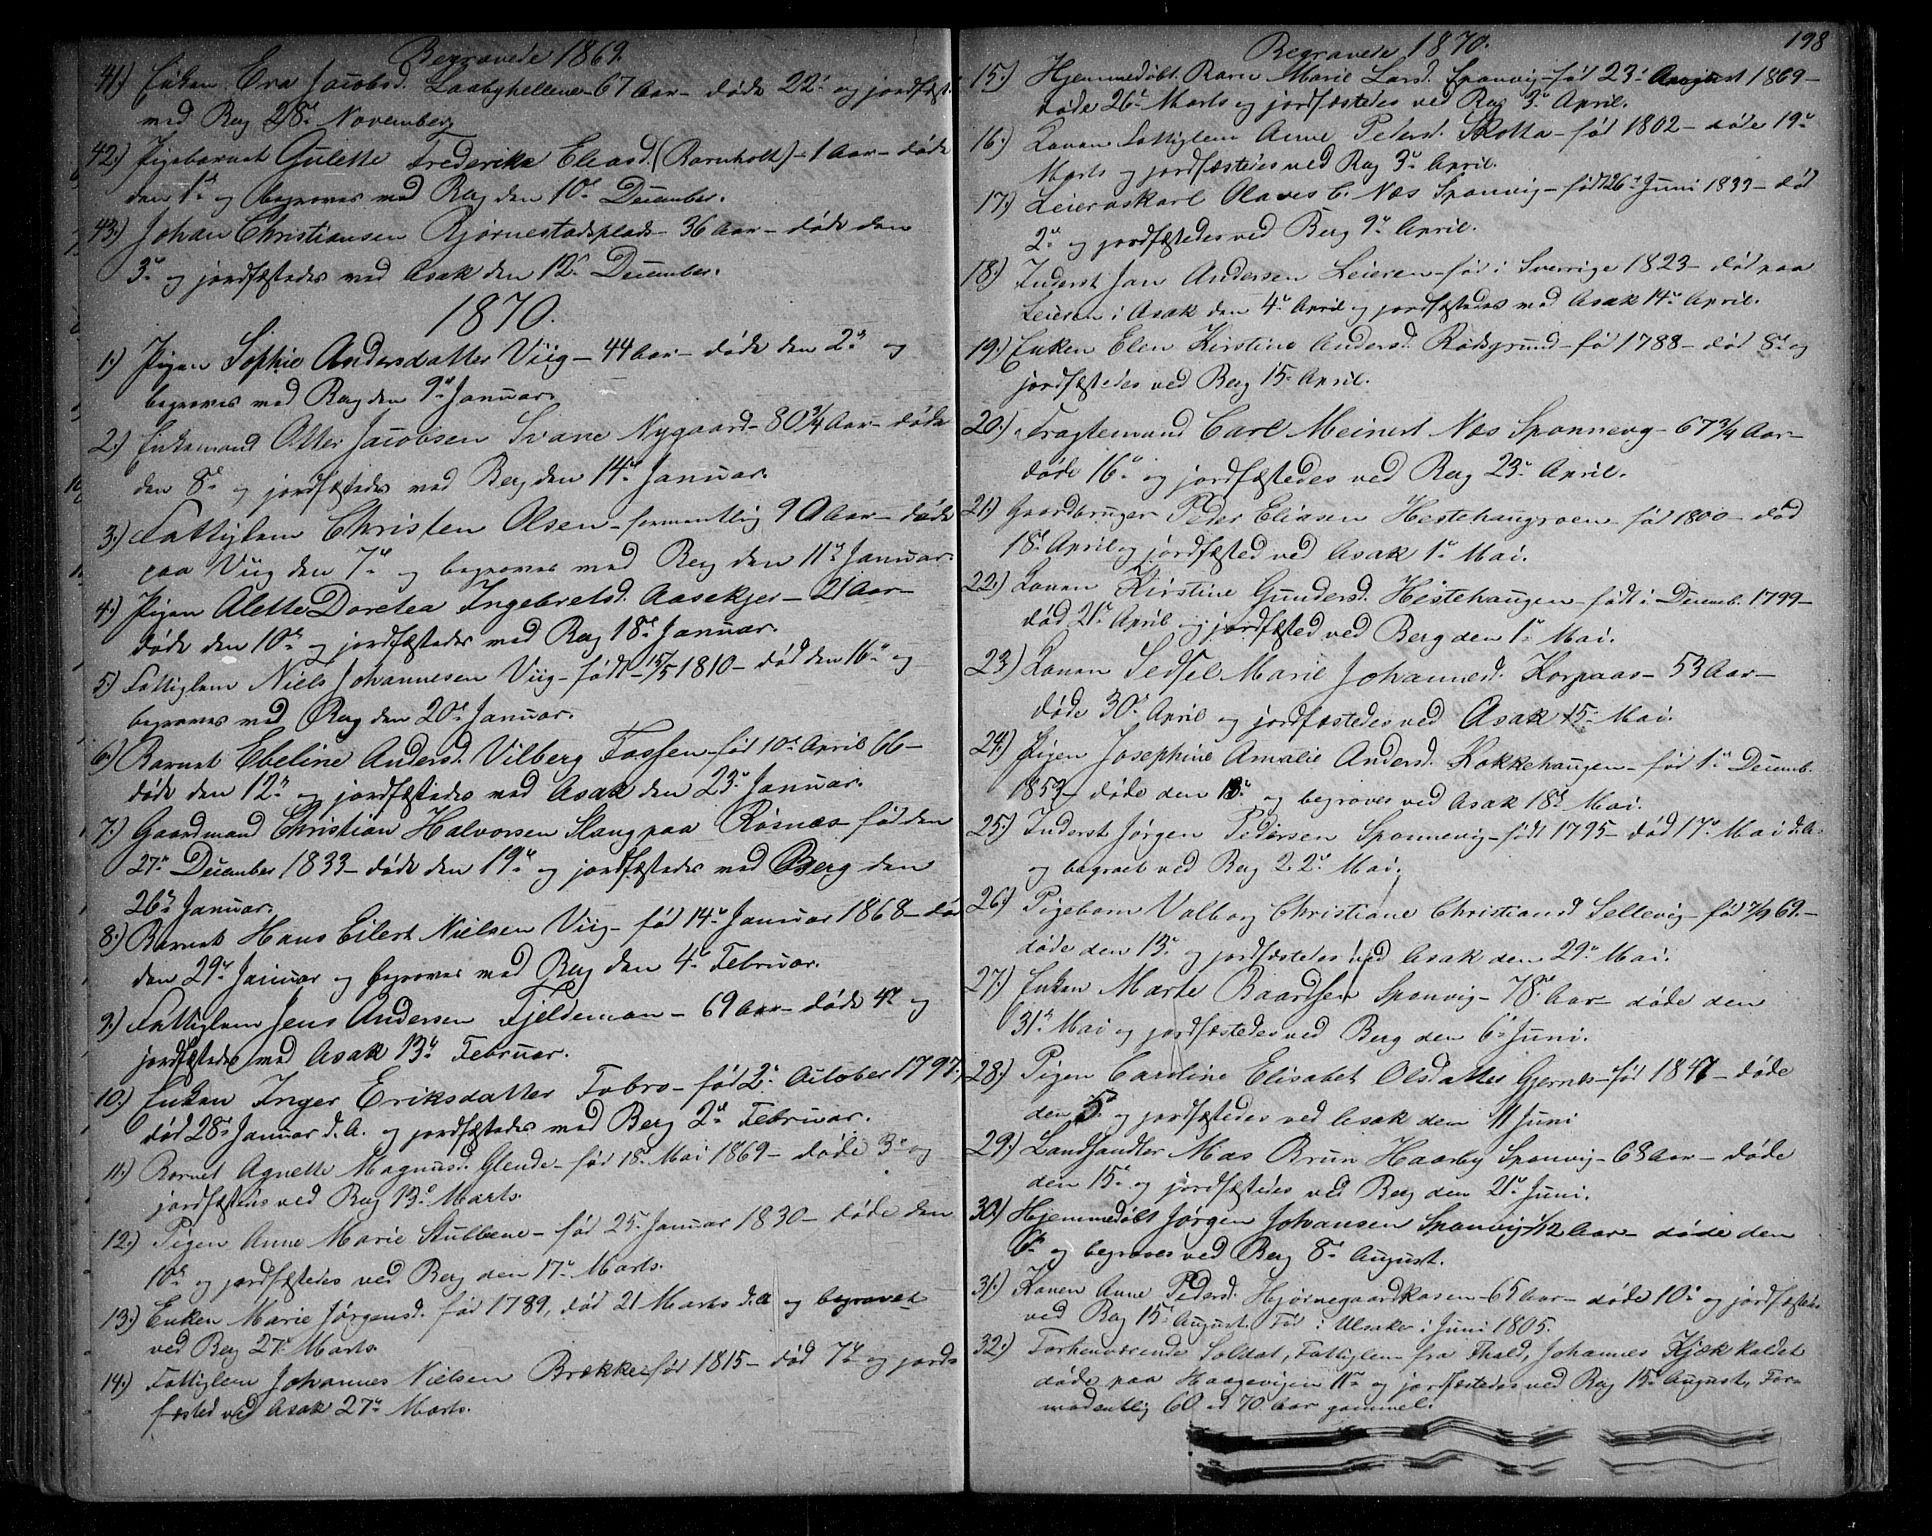 Begravede 1869.
41.) Enken Eva Jacobsd. Laabyhellene – 67 Aar – døde 22de og jordfæst.
ved Berg 28de November
42.) Pigebarnet Gulette Frederike Eliasd. (Barnholt) – 1 Aar – døde
den 1ste og begraves ved Berg den 10de December.
43.) Johan Christiansen Bjørnestadsplads – 36 Aar – døde den
3de og jordfæstedes ved Asak den 12te December.
1870.
1.) Pigen Sophie Andersdatter Viig – 44 Aar – døde den 2den og
begraves ved Berg den 9de Januar.
2.) Enkemand Otter Jacobsen Svane Nygaard – 80 3/4 Aar – døde
den 8de og jordfæstedes ved Berg den 14de Januar.
3.) Fattiglem Christen Olsen – formentlig 90 Aar – døde
paa Viig den 7de og begraves ved Berg den 11te Januar.
4.) Pigen Alette Doretea Ingebretsd. Aasekjer – 21 Aar –
døde den 10de og jordfæstedes ved Berg 18de Januar.
5.) Fattiglem Niels Johannesen Viig – født 15/5 1810 – død den 16de og
begraves ved Berg den 20de Januar.
6.) Barnet Ebeline Andersd. Vilberg Fossen – fød 10de April 66 –
døde den 12te og jordfæstedes ved Asak den 23de Januar.
7.) Gaardmand Christian Halvorsen Stang paa Røsnæs – fød den
27de December 1833 – døde den 19de og jordfæstedes ved Berg den
26de Januar.
8.) Barnet Hans Eilert Nielsen Viig – fød 14de Januar 1868 – død
den 29de Januar og begraves ved Berg den 4de Februar.
9.) Fattiglem Jens Andersen Fjeldeman – 69 Aar – døde 4de og
jordfæstedes ved Asak 13de Februar.
10.) Enken Inger Eriksdatter Tobro – fød 2den October 1797,
død 28de Januar d. A. og jordfæstedes ved Berg 2den Februar.
11.) Barnet Agnette Magnusd. Glende – fød 18de Mai 1869 – døde 3de og
jordfæstedes ved Berg 13de Marts.
12.) Pigen Anne Marie Stubbene – fød 25de Januar 1830 – døde den
10de og jordfæstedes ved Berg den 17de Marts.
13.) Enken Marie Jørgensd. fød 1789, død 21 Marts d. A og begravet
ved Berg 27de Marts.
14.) Fattiglem Johannes Nielsen Brække fød 1815 – død 7de og jord-
fæsted ved Asak 27de Marts.
Begravede 1870.
198
15.) Hjemmedøbt Barn Marie Larsd. Sponvig – fød 23de August 1869 –
døde 26de Marts og jordfæstedes ved Berg 3de April.
16.) Konen Fattiglem Anne Pedersd. Skotta – fød 1802 – døde 19de
Marts og jordfæstedes ved Berg 3de April.
17.) Leieraskarl Olaves C. Næs Sponvig – født 26de Juni 1833 – død
2den og jordfæstedes ved Berg 9de April.
18.) Inderst Jan Andersen Leieren – fød i Sverrige 1823 – død paa
Leieren i Asak den 4de April og jordfæstedes ved Asak 14de April.
19.) Enken Elen Kirstine Andersd. Rødsgrund – fød 1788 – død 8de og
jordfæstedes ved Berg 15de April.
20.) Fragtemand Carl Meinert Næs Sponnevg – 67 3/4 Aar –
døde 16de og jordfæstedes ved Berg 23de April.
21.) Gaardbruger Peder Eliasen Hestehaugroen – fød 1800 – død
18de April og jordfæsted ved Asak 1ste Mai.
22.) Konen Kirstine Gundersd. Hestehaugen – født i Decemb. 1799 –
død 21de April og jordfæsted ved Berg den 1ste Mai.
23.) Konen Sedsel Marie Johannesd. Korpaas – 53 Aar –
døde 30de April og jordfæstedes ved Asak 15de Mai.
24.) Pigen Josephine Amalie Andersd. Kokkehaugen – fød 1ste Decemb.
1853 – døde den 12te og begraves ved Asak 18de Mai.
25.) Inderst Jørgen Pedersen Sponnevig – født 1795 – død 17de Mai d. A.
og begravet ved Berg 22de Mai.
26.) Pigebarn Valborg Christiane Christiansd Sellevig – fød 7/9 69. –
døde den 13de og jordfæstedes ved Asak den 29de Mai.
27.) Enken Marte Baardsen Sponvig – 78 Aar – døde den
31te Mai og jordfæstedes ved Berg den 6te Juni.
28.) Pigen Caroline Elisabet Olsdatter Gjernes – fød 1847 – døde
den 5te og jordfæstedes ved Asak den 11 Juni
29.) Landhandler Mas Brun Haarby Sponvig – 68 Aar – døde
den 15de og jordfæstedes ved Berg den 21de Juni.
30.) Hjemmedøbt Jørgen Johansen Sponvig 1/12 Aar – døde den
6te og begraves ved Berg 8de August.
31.) Konen Anne Pedersd. Hjørnegaardkasen – 65 Aar – døde 10de og jordfæstedes
ved Berg 15de August. Fød i Ulsaker i Juni 1805.
32.) Forhenværende Soldat, Fattiglem fra Thald, Johannes Kjæk kaldet
døde paa Haagevigen 11te og jordfæstedes ved Berg 15de August, For-
modentlig 60 a 70 Aar gammel.